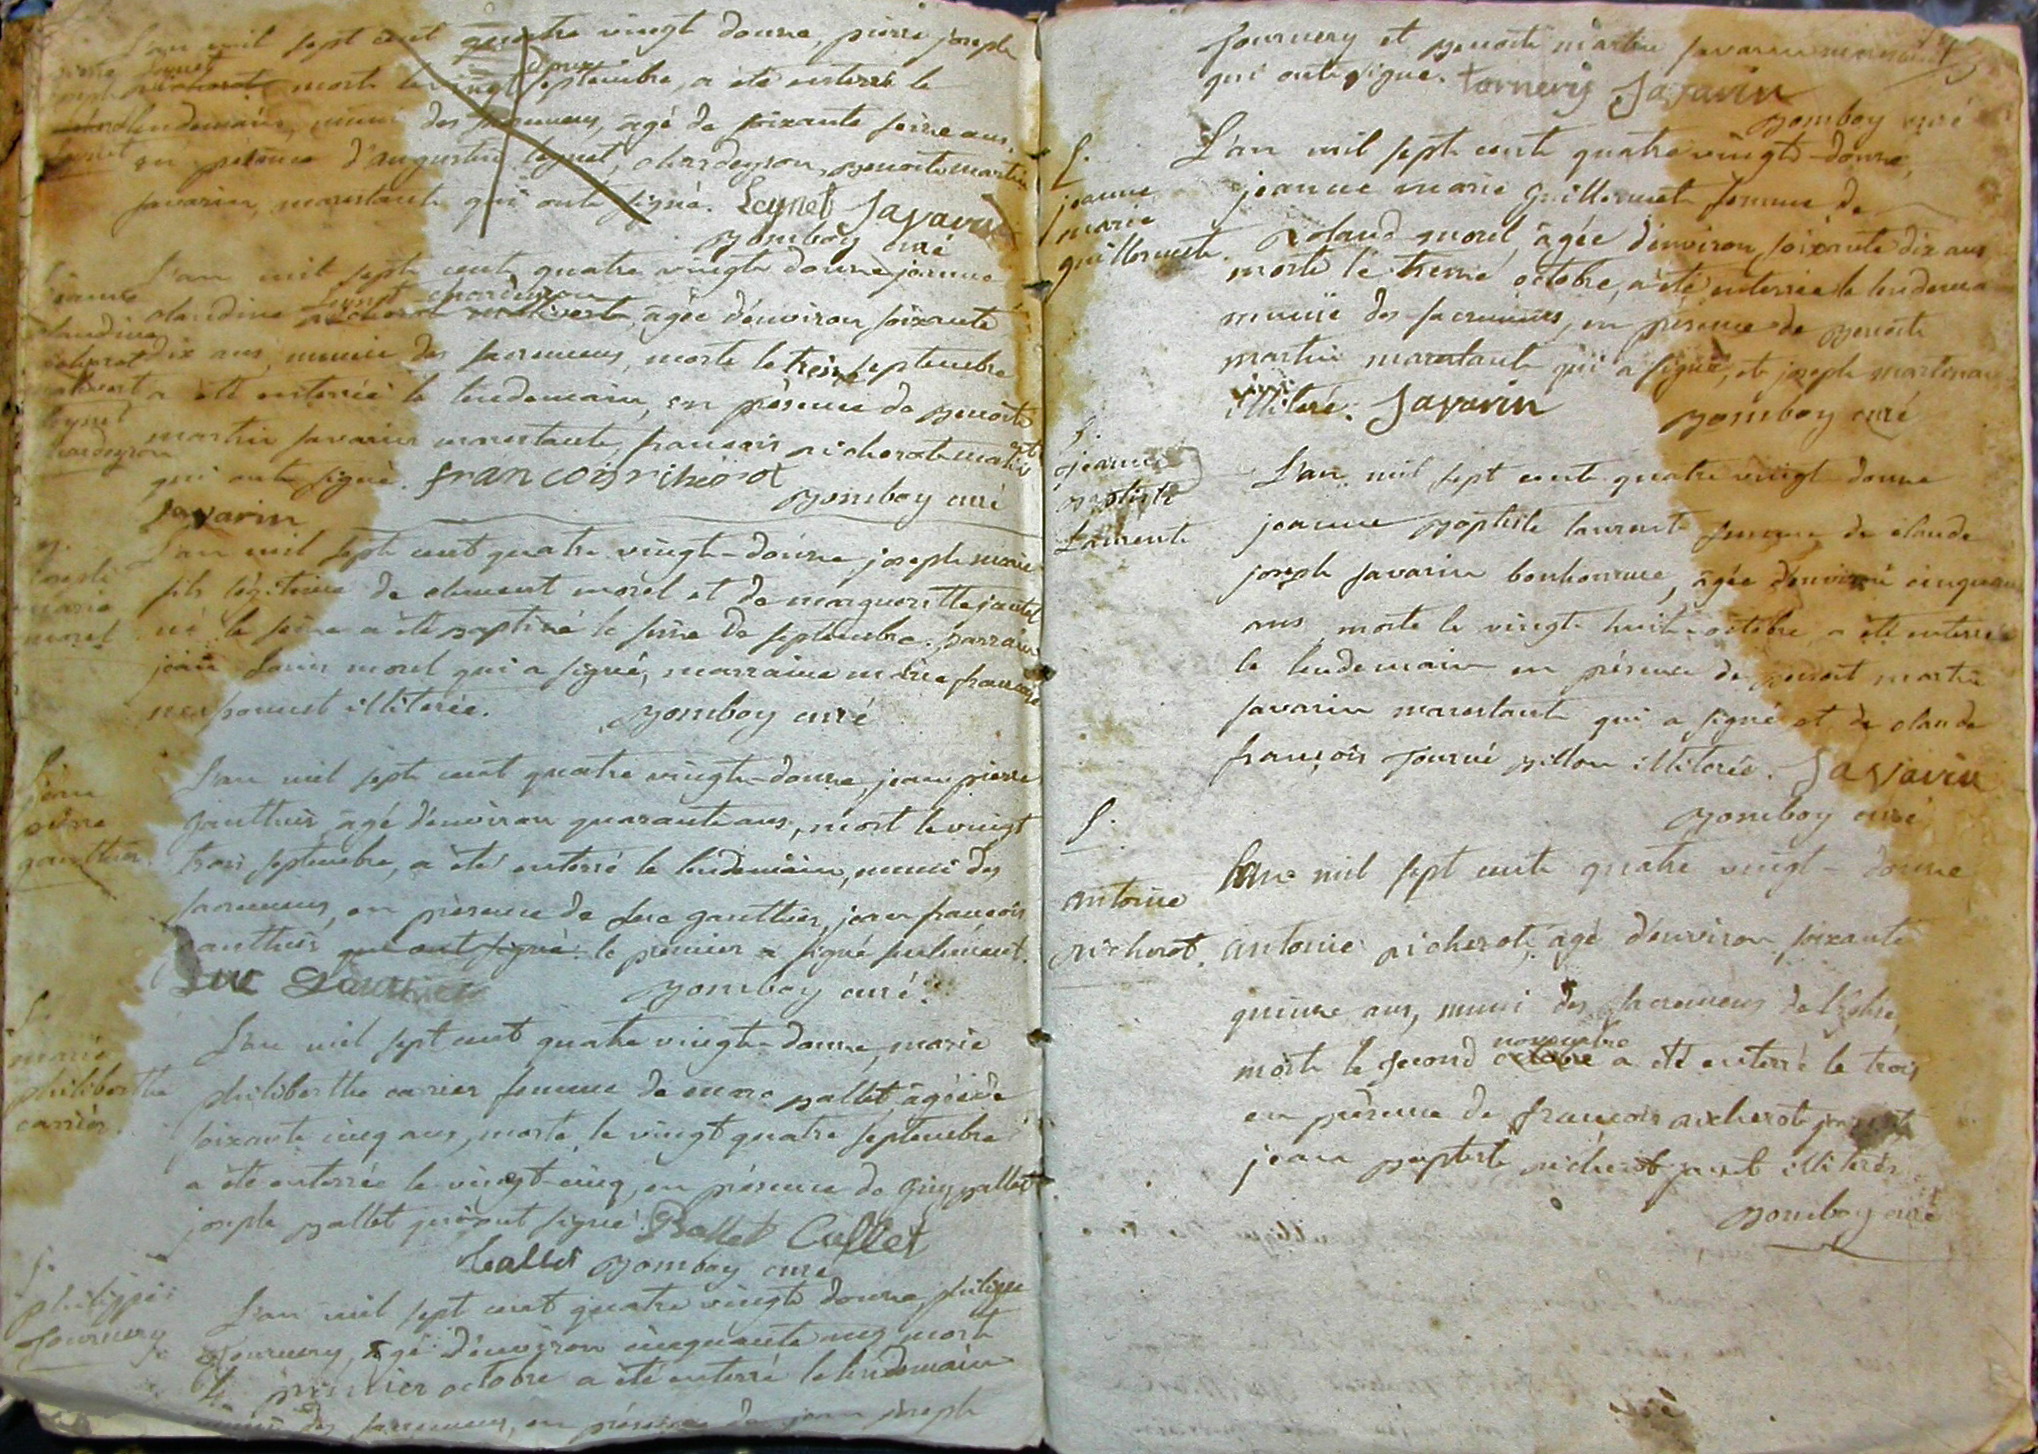 L'an mil sept cent quatre vingt douze, pierre joseph
Leynet
mort le vingt douze septembre, a été enterré le
lendemain, muni des sacremens, âgé de soixante seize ans,
en présence d'augustin leynet, chardeyron, benoit martin
savarin, marestant qui ont signé. Leynet Savarin
bomboy curé
L'an mil sept cent quatre vingt douze jeanne
claudine leynet chardeyron âgée d'environ soixante
dix ans, munie des sacremens, morte le treize septembre
a été enterrée le lendemain, en présence de benoit
martin savarin marestant, françois richerot
qui ont signé. francois richerot
bomboy curé
Savarin
joseph
marie
morel
L'an mil sept cent quatre vingt-douze joseph marie
fils légitime de clement morel et de margueritte jantet
né le seize a été baptisé le seize de septembre. parrain
jean louis morel qui a signé, marraine marie françoise
illiterée. bomboy curé
jean
pierre
gauthier.
L'an mil sept cent quatre vingt-douze, jean pierre
gauthier âgé d'environ quarante ans, mort le vingt
trois septembre, a été enterré le lendemain, muni des
sacremens, en présence de luc gauthier, jean françois
gauthier qui ont signé. le premier a signé seulement.
Luc Gauthier bomboy curé.
marie
philiberthe
carrier.
L'an mil sept cent quatre vingt-douze, marie
philiberthe carrier femme de marc ballet âgée de
soixante cinq ans, morte le vingt quatre septembre
a été enterrée le vingt-cinq, en présence de guy ballet
joseph ballet qui ont signé. Ballet Cullet
Ballet bomboy curé
philippe
fournery
L'an mil sept cent quatre vingt douze, philippe
fournery, âgé d'environ cinquante ans mort
le premier octobre a été enterré le lendemain
muni des sacremens, en présence de jean joseph
fournery et benoit martin savarin marestant
qui ont signé. fornery Savarin
bomboy curé
S.
jeanne
marie
guillermet.
L'an mil sept cent quatre vingt-douze,
jeanne marie guillermet femme de
Roland morel, âgée d'environ soixante dix ans
morte le treize octobre, a été enterrée le lendema
munie des sacremens, en présence de benoit
martin marestant qui a signé, et joseph
illiteré. Savarin bomboy curé
S.
jeanne
baptiste
laurent
L'an mil sept cent quatre vingt-douze
jeanne baptiste laurent femme de claude
joseph savarin bonhomme, âgée d'environ cinquante
ans morte le vingt huit octobre a été enterrée
le lendemain en présence de benoit martin
savarin marestant qui a signé et de claude
françois fournié billon illiterée. Savarin
bomboy curé
S.
antoine
richerot.
L'an mil sept cent quatre vingt-douze
antoine richerot, âgé d'environ soixante
quinze ans, muni des sacremens de l'église,
novembre
mort le second octobre a été enterré le trois
en présence de françois richerot
jean baptiste richerot illiterés
bomboy curé